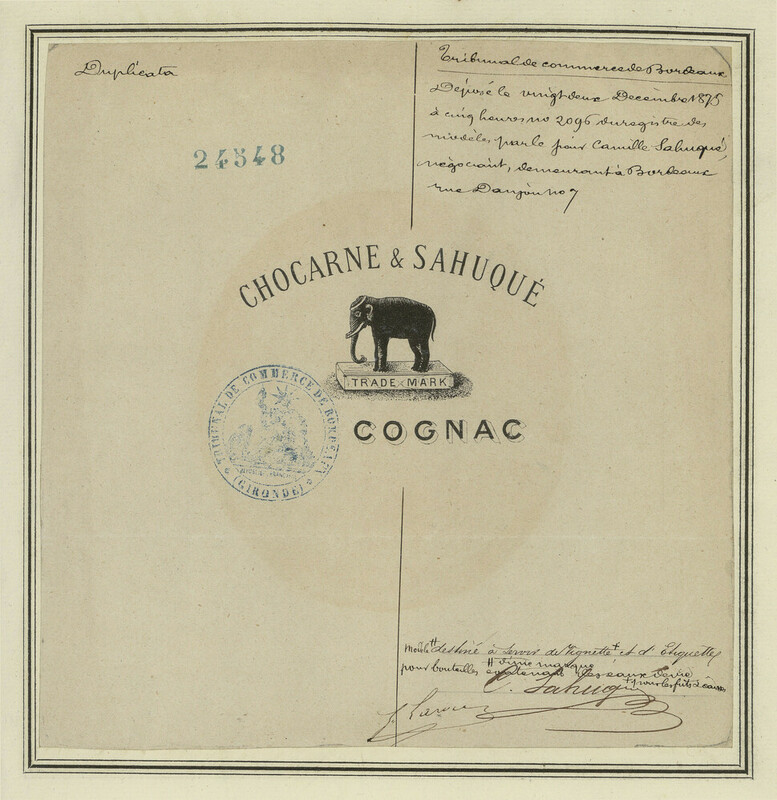 Duplicata
Tribunal de commerce de Bordeaux
Déposé le vingt deux Décembre 1875
à cinq heures no 2096 du registre des
modèles par le sieur Camille Sahuqué,
négociant, demeurant à Bordeaux
rue no 7
24548
CHOCARNE & SAHUQUÉ
TRADE MARK
COGNAC
TRIBUNAL DE COMMERCE DE BORDEAUX
(GIRONDE)
Modèle destiné à servir de Vignette et d'Etiquette
pour bouteilles contenant des eaux de vie
d'une marque
pour les fûts
C. Sahuqué